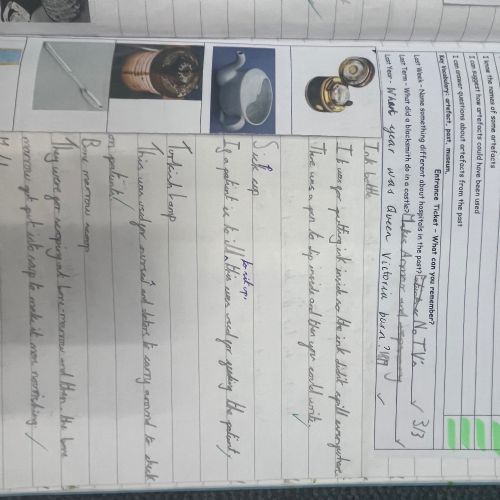 I know the name of some artefacts
I can suggest how artefacts could have been used
I can answer questions about artefacts from the past
Key Vocabulary: artefact, past, museum
Entrance Ticket - What can you remember?
Last Week - Name something different about hospitals in the past? No T.V's
3/3
Last Term - What did a blacksmith do in a castle? Makes Armour and weaponry
Last Year - What year was Queen Victoria born? 1819
Ink bottle
It was for putting ink inside so the ink didn't spill everywhere.
There was a pen to dip inside and then you could write.
Sick cup
If a patient is to ill to sit up, this was used for feeding the patient,
Turkish lamp
This was used for nurses and doctors to carry around to check
on patients
Bone marrow scoop
They were for scooping out bone-marrow and then the bone
marrow got put into soup to make it more nourishing.